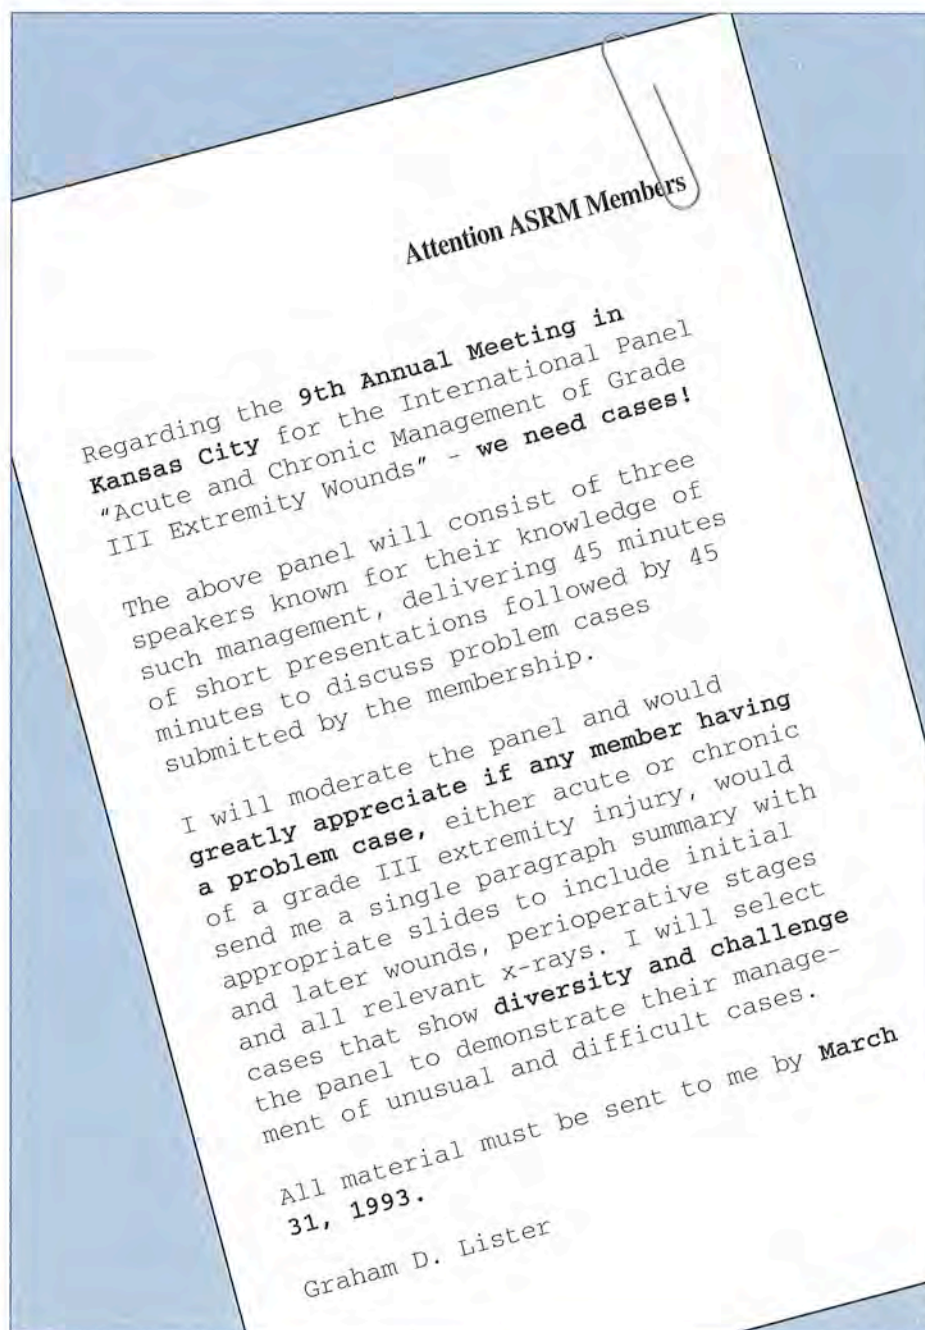 Attention ASRM Members
Regarding the 9th Annual Meeting in
Kansas City for the International Panel
"Acute and Chronic Management of Grade
III Extremity Wounds" - we need cases!
The above panel will consist of three
speakers known for their knowledge of
such management, delivering 45 minutes
of short presentations followed by 45
minutes to discuss problem cases
submitted by the membership.
I will moderate the panel and would
greatly appreciate if any member having
a problem case, either acute or chronic
of a grade III extremity injury, would
send me a single paragraph summary with
appropriate slides to include initial
and later wounds, perioperative stages
and all relevant x-rays. I will select
cases that show diversity and challenge
the panel to demonstrate their manage-
ment of unusual and difficult cases.
All material must be sent to me by March
31, 1993.
Graham D. Lister